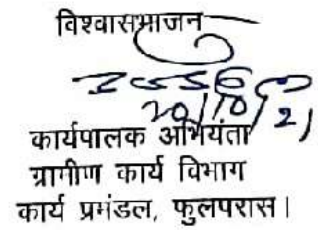 विश्वासभाजन
20/10/21
कार्यपालक अभियंता
ग्रामीण कार्य विभाग
कार्य प्रमंडल, फुलपरास।